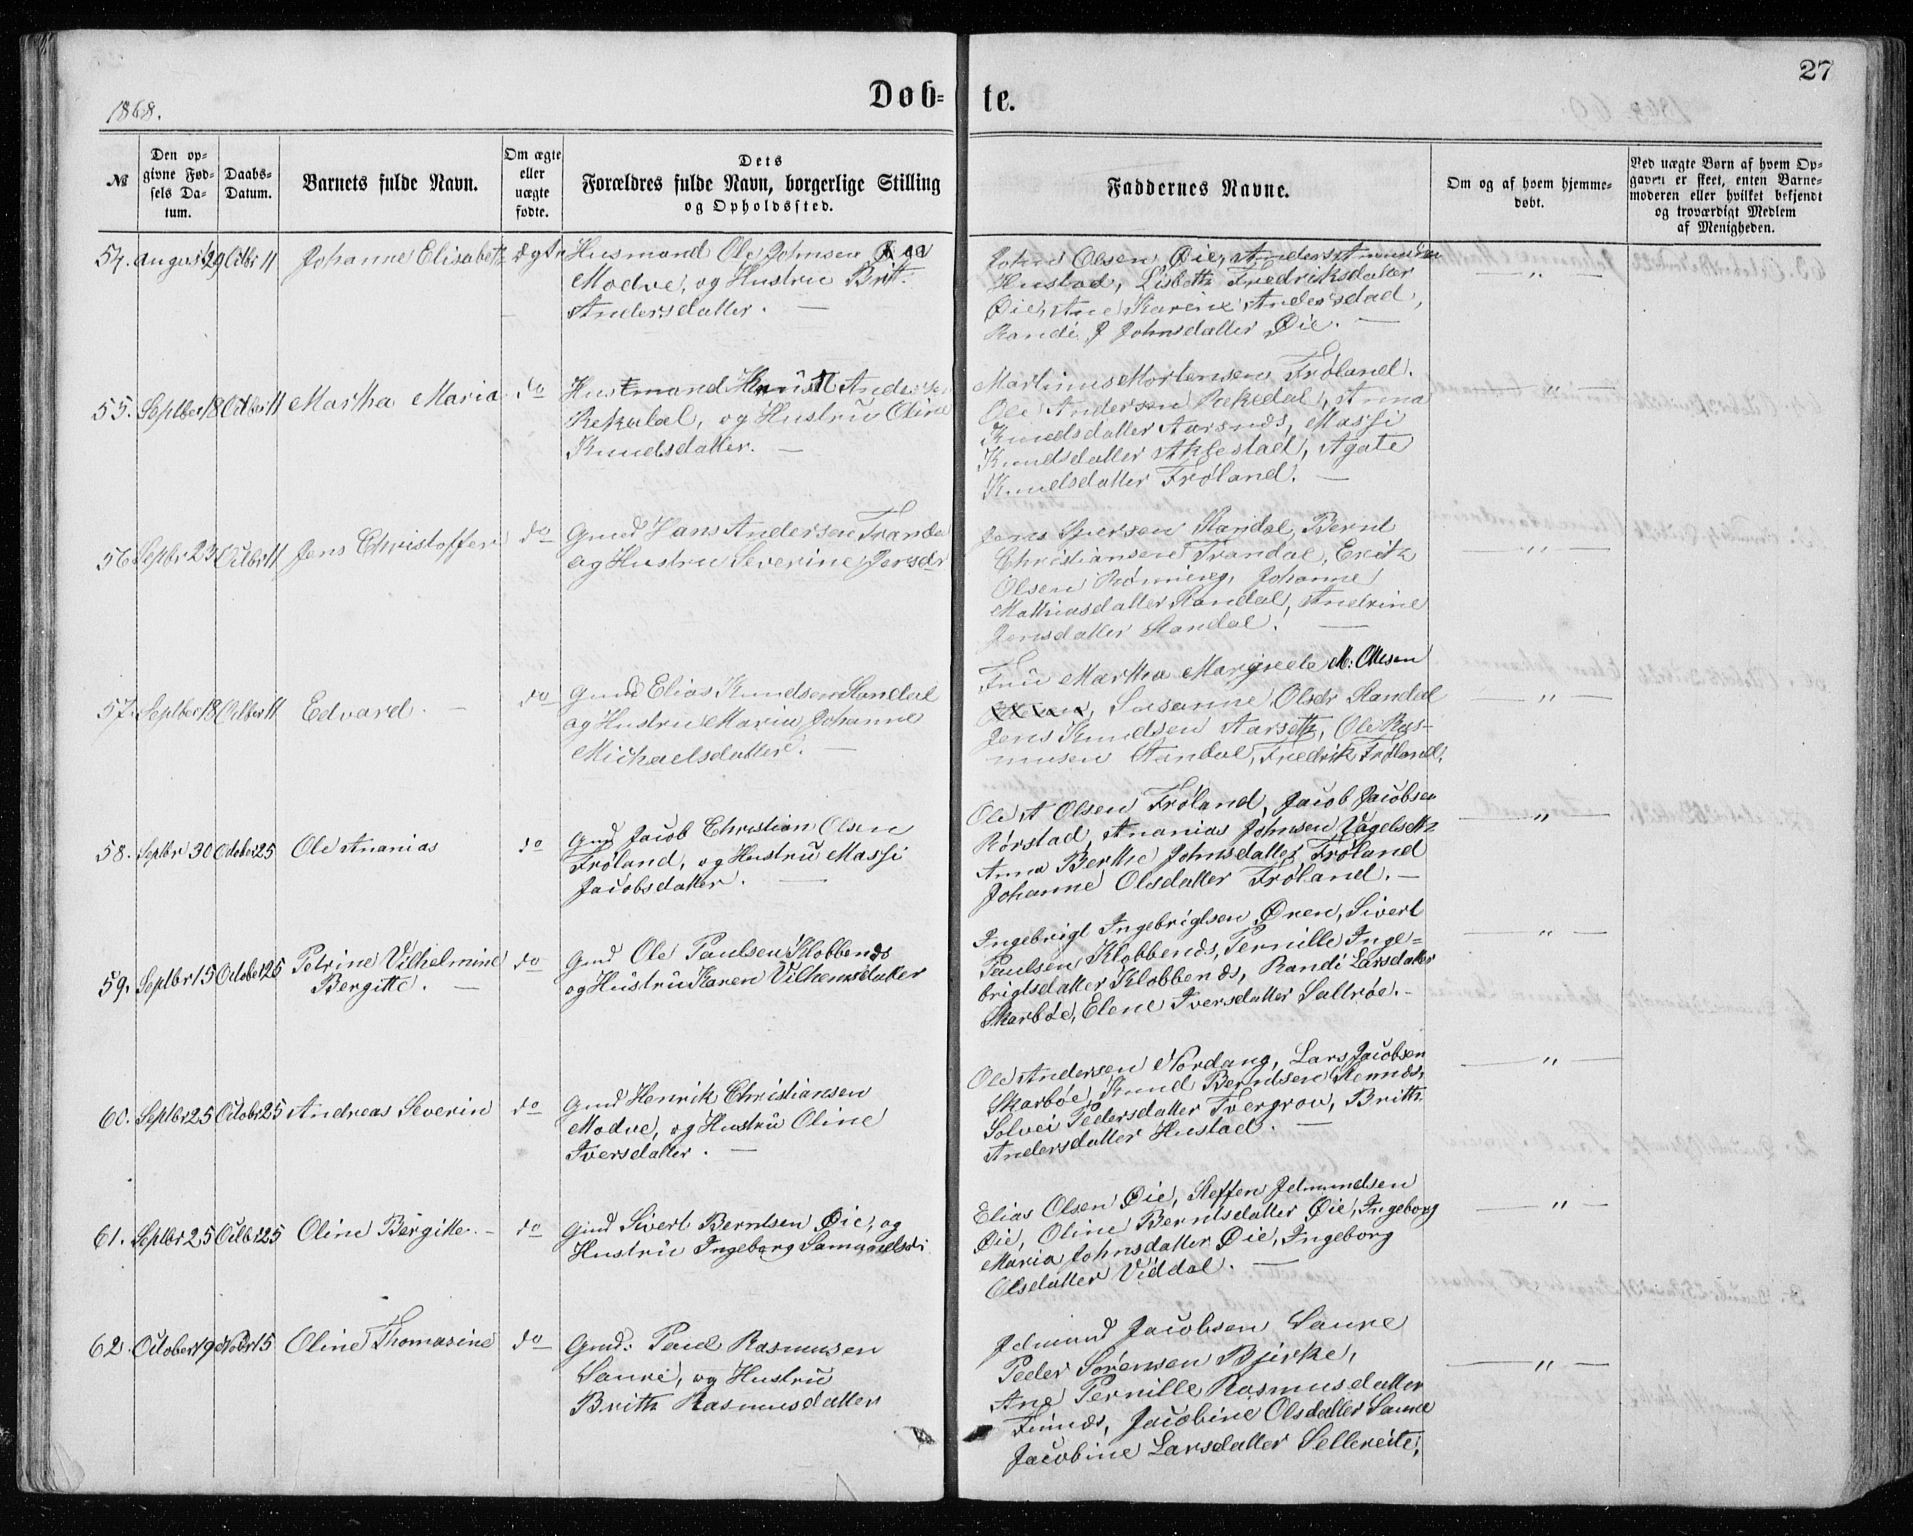 27
1868.
Døb-
te.
№
Den op-
givne Fød-
sels Da-
tum.
Daabs-
Datum.
Barnets fulde Navn.
Om ægte
eller
uægte
fødte.
Dets
Forældres fulde Navn, borgerlige Stilling
og Opholdssted.
Faddernes Navne.
Om og af hvem hjemme-
døbt.
Ved uægte Børn af hvem Op-
gaven er skeet, enten Barne-
moderen eller hvilket bekjendt
og troværdigt Medlem
af Menigheden.
54. August 29 Octbr 11 Johanne Elisabeth ægte
Husmand Ole Johnsen
Modve, og Hustru Britt.
Andersdatter. —
John Olsen Øie, Anders Amundsen
Hustad, Lisbeth Fredriksdatter
Øie, Ane Karine Andersdad,
Randi J Johnsdatter Øie. —
— " —
55. Septber 18 Octber 11 Martha Maria do
Husmand Knut Andersen
Rekedal, og Hustru Oline
Knudsdatter. —
Martinus Mortensen Frøland.
Ole Andersen Rekedal, Anna
Knudsdatter Aarsnds, Massi
Knudsdatter Aklestad, Agate
Knudsdatter Frøland. —
— " —
56. Septbr 23 Octbr 11 Jens Christoffer do
Gmd Hans Andersen Trandal
og Hustru Severine Jensdr
Jens Sjursen Standal, Bernt
Christiansen Trandal, Erik
Olsen Rønning, Johanne
Mathiasdatter Standal, Andrine
Jensdatter Standal. —
— " —
57. Septber 18 Octber 11 Edvard. — do
Gmd Elias Knudsen Standal
og Hustru Maria Johanne
Michaelsdatter. —
Frú Martha Margrete M: Olsen
Susanne Olsdr Standal
Jens Knudsen Aarseth, Ole Ras-
musen Standal, Fredrik Frøland.
— " —
58. Septbr 30 October 25 Ole Ananias do
Gmd Jacob Christian Olsen
Frøland, og Hustrú Massi
Jacobsdatter. —
Ole A Olsen Frøland, Jacob Jacobsen
Rørstad, Ananias Johnsen Vagelseth
Anna Berthe Johnsdatter Frøland
Johanne Olsdatter Frøland. —
— " —
59. Septbr 15 October 25 Petrine Vilhelmine do
Bergitte. —
Gmd Ole Paulsen Klobbends
og Hústrú Karen Vilhemsdatter
Ingebrigt Ingebrigtsen Øren, Sivert
Paulsen Klobbends, Pernille Inge-
brigtsdatter Klobbends, Randi Larsdatter
Skarbøe, Elene Iversdatter Saltrøe. -
— " —
60. Septbr 25 Octobr 25 Andreas Severin do
Gmd Henrik Christiansen
Modve, og Hustrú Oline
Iversdatter. —
Ole Andersen Nordang, Lars Jacobsen
Skarbøe, Knud Berntsen Stennds
Solvei Pedersdatter Tvergrov, Britth
Andersdatter Hustad. —
— " —
61. Septbr 25 Octbr 25 Oline Bergitte. - do
Gmd Sivert Berntsen Øie, og
Hustrú Ingeborg Samuelsdr
Elias Olsen Øie, Steffen Jetmundsen
Øie, Oline Berntsdatter Øie, Ingeborg
Maria Johnsdatter Øie, Ingeborg
Olsdatter Viddal. —
— " —
62. October 19 Novbr 15 Oline Thomasine do
Gmd: Paul Rasmusen
Saure, og Hustrú
Brith Rasmusdatter
Jetmund Jacobsen Saure
Peder Sørensen Bjerke,
Ane Pernille Rasmusdatter
Finnds, Jacobine Olsdatter Saure
Jacobine Larsdatter Sellereite,
— " —